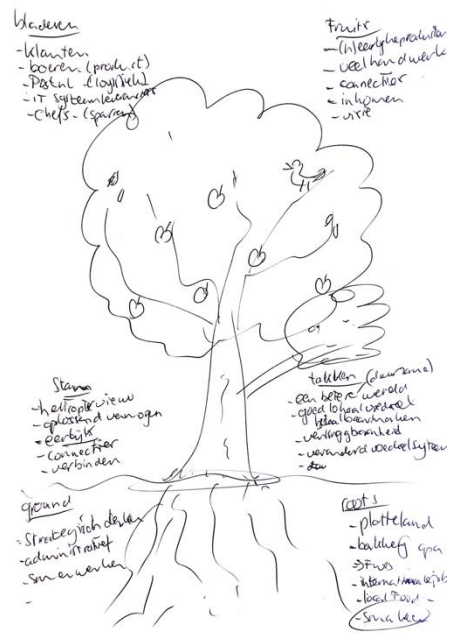 bladeren
- klanten
- boeren (product)
- Postnl - (logistiek)
- IT systeemleverancier
- Chefs - (sparren)
Fruits
- (h)eerlijke producten
- veel handwerk
- connectier
- inkomen
- visie
Stam
- helicopterview
- oplossend vermogen
- eerlijk
- connectier
- verbinden
takken (duurzame)
- een betere wereld
- goed lokaal voedsel
- verkrijgbaarheid
- veranderd voedselsysteem
ground
- Strategisch denken
- administratief
- samenwerken
-
roots
- platteland
- local Food